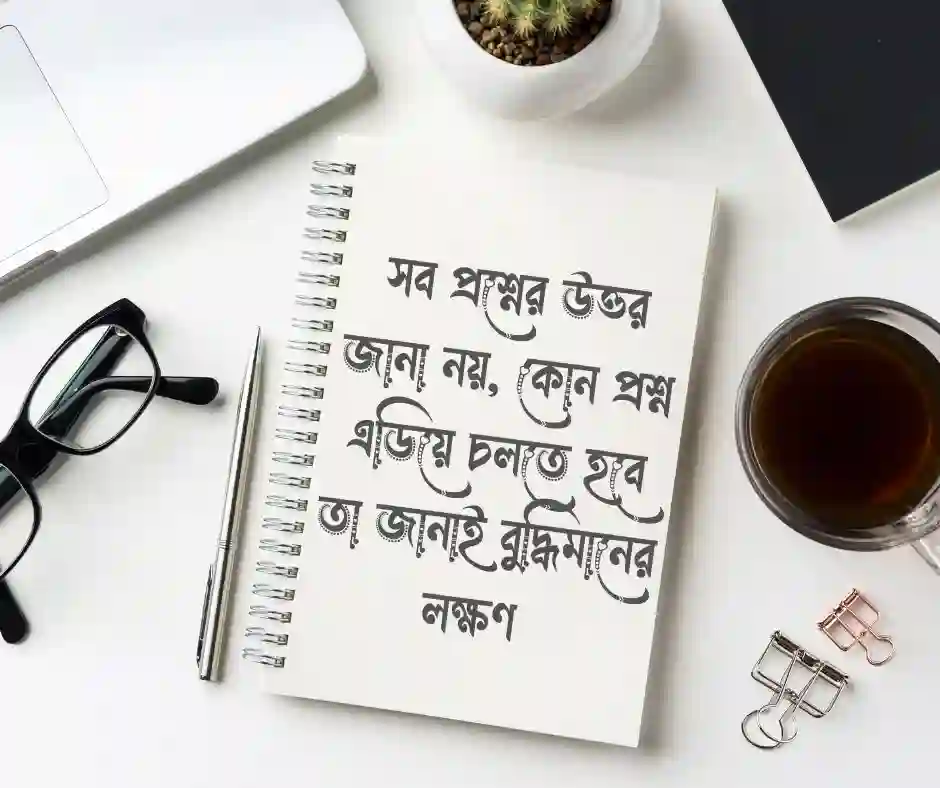 সব প্রশ্নের উত্তর
জানা নয়, কোন প্রশ্ন
এড়িয়ে চলতে হবে
তা জানাই বুদ্ধিমানের
লক্ষণ